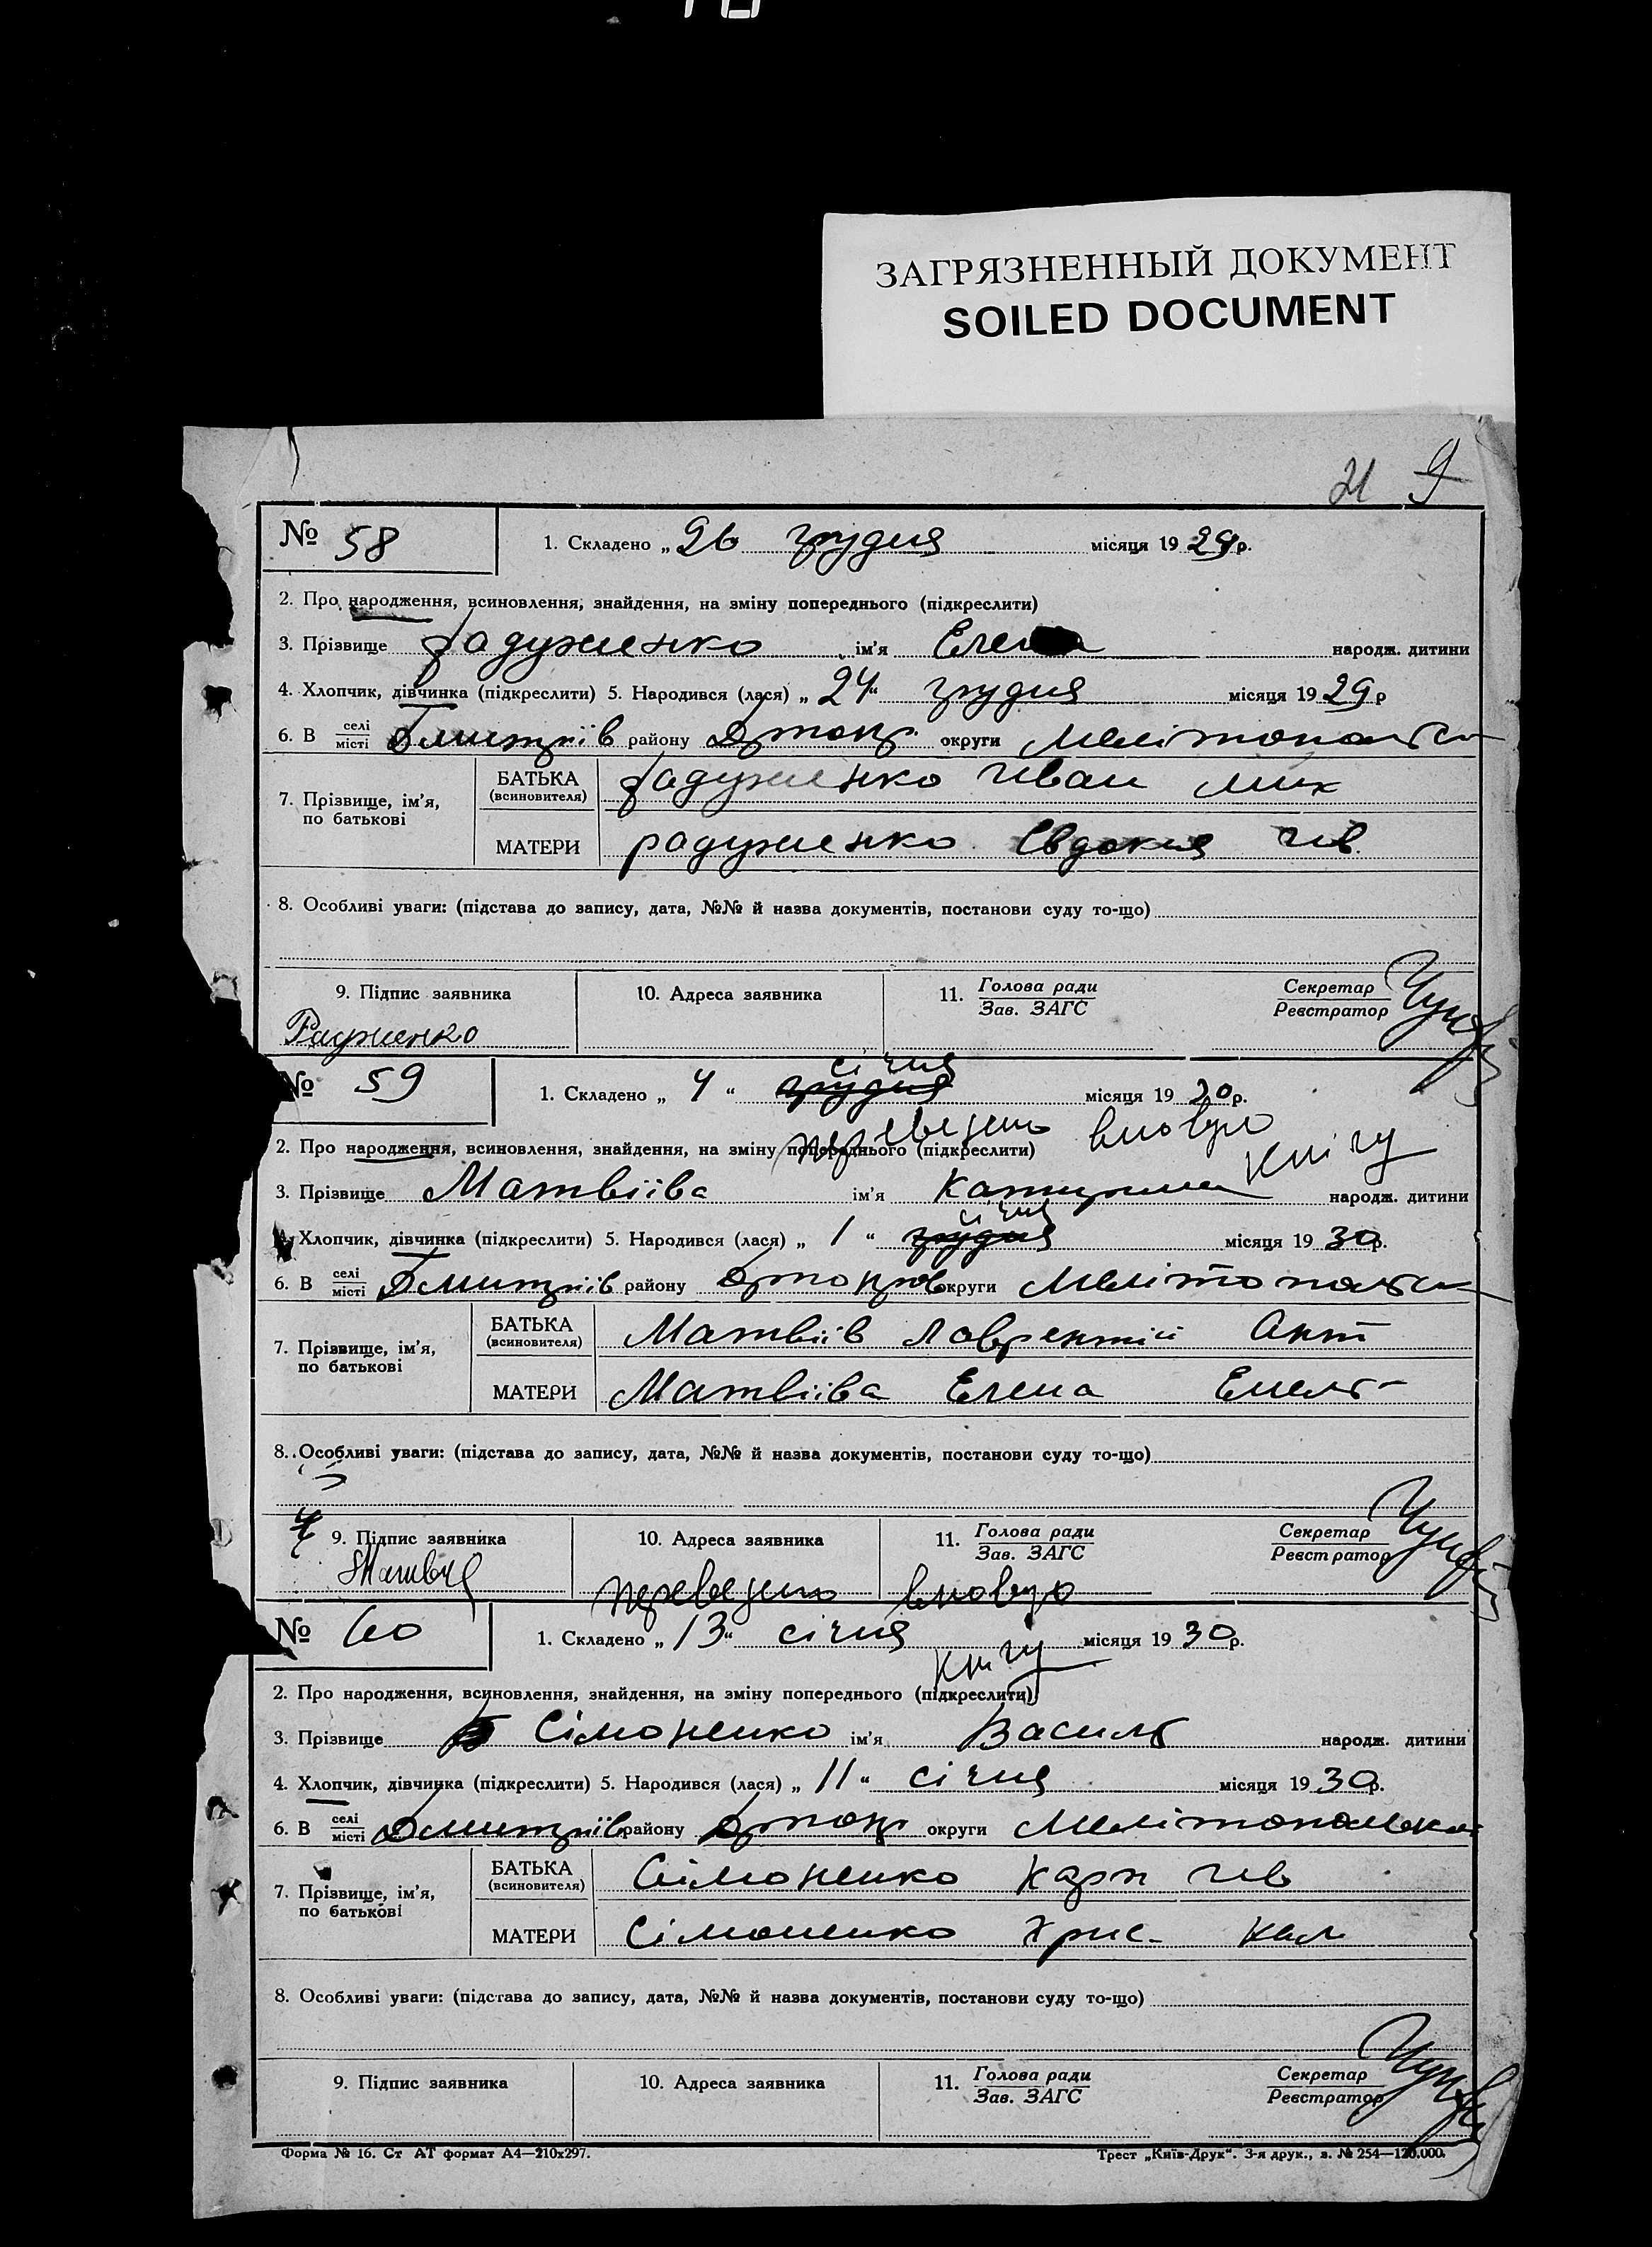 ЗАГРЯЗНЕННЫЙ ДОКУМЕНТ
SOILED DOCUMENT
21 9
№ 58 1. Складено „ 26 грудня місяця 19 29 р.
2. Про народження, всиновлення, знайдення, на зміну попереднього (підкреслити)
3. Прізвище Радуженко ім'я Елена народж. дитини
4. Хлопчик, дівчинка (підкреслити) 5. Народився (лася) „ 24 “ грудня місяця 19 29 р
6. В селі місті Дмитріїв району округи
7. Прізвище, ім'я, по батькові
БАТЬКА (всиновителя) Радуженко Иван Мих
МАТЕРИ Радуженко Евдокия Ив
8. Особливі уваги: (підстава до запису, дата, №№ й назва документів, постанови суду то-що)
9. Підпис заявника 10. Адреса заявника 11. Голова ради Зав. ЗАГС Секретар Реєстратор
Радженко
№ 59 1. Складено „ 4 “ грудня січня місяця 19 30 р.
переведено вновую книгу
2. Про народження, всиновлення, знайдення, на зміну попереднього (підкреслити)
3. Прізвище Матвіїва ім'я Катирина народж. дитини
4. Хлопчик, дівчинка (підкреслити) 5. Народився (лася) „ 1 “ грудня січня місяця 19 30 р.
6. В селі місті Дмитріїв району округи
7. Прізвище, ім'я, по батькові
БАТЬКА (всиновителя) Матвіїв Лаврентій Ант
МАТЕРИ Матвіїва Елена Емель
8. Особливі уваги: (підстава до запису, дата, №№ й назва документів, постанови суду то-що)
9. Підпис заявника 10. Адреса заявника 11. Голова ради Зав. ЗАГС Секретар Реєстратор
переведено вновую
№ 60 1. Складено „ 13 “ січня місяця 19 30 р.
книгу
2. Про народження, всиновлення, знайдення, на зміну попереднього (підкреслити)
3. Прізвище Сімоненко ім'я Василь народж. дитини
4. Хлопчик, дівчинка (підкреслити) 5. Народився (лася) „ 11 “ січня місяця 19 30 р.
6. В селі місті Дмитріїв району округи Мелітопольскої
7. Прізвище, ім'я, по батькові
БАТЬКА (всиновителя) Сімоненко Карп Ив
МАТЕРИ Сімоненко Хрис. Кал
8. Особливі уваги: (підстава до запису, дата, №№ й назва документів, постанови суду то-що)
9. Підпис заявника 10. Адреса заявника 11. Голова ради Зав. ЗАГС Секретар Реєстратор
Форма № 16. Ст АТ формат А4—210х297. Трест „Київ-Друк“. 3-я друк., в. № 254—120.000.